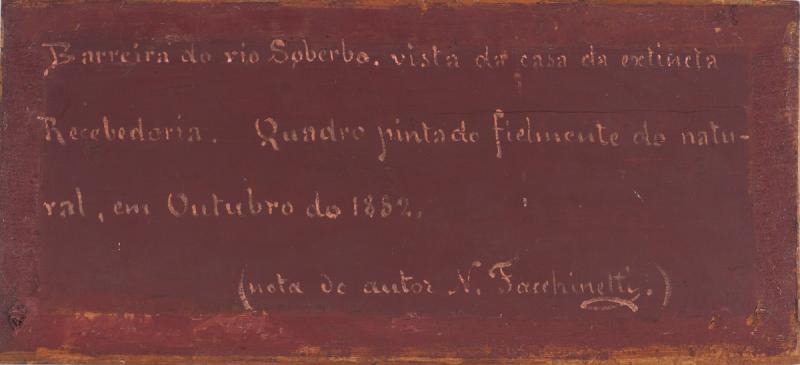 Barreira do rio Soberbo. vista da casa da extincta
Recebedoria. Quadro pintado fielmente do natu-
ral, em Outubro de 1882.
(nota do autor N. Facchinetti.)